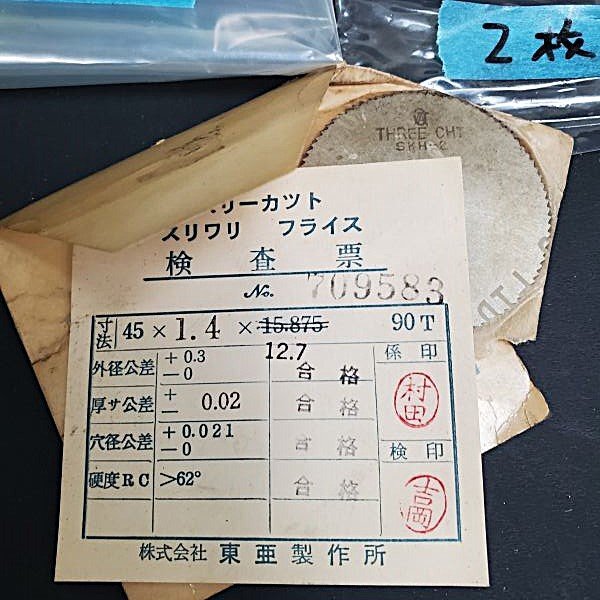 2枚
THREE CHT
SKH-2
LTD
リーカット
スリワリ フライス
検査票
No. 709583
寸法 45 × 1.4 × 15.875 90T
12.7
外径公差 +0.3 -0 合格 係印
厚サ公差 +- 0.02 合格 村田
穴径公差 +0.021 -0 合格 検印
硬度RC >62° 合格 吉岡
株式会社 東亜製作所